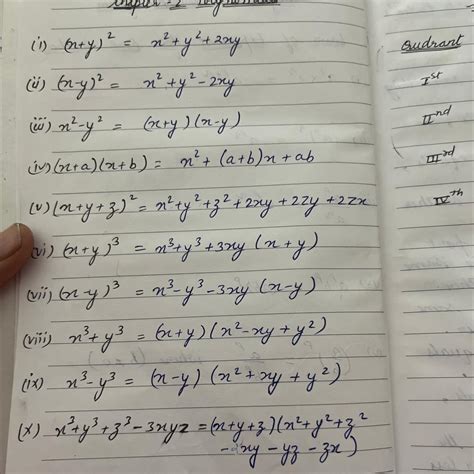 Chapter - 2 Polynomials
(i) (x+y)² = x²+y²+2xy
(ii) (x-y)² = x²+y²-2xy
(iii) x²-y² = (x+y)(x-y)
(iv) (x+a)(x+b) = x²+(a+b)x+ab
(v) (x+y+z)² = x²+y²+z²+2xy+2zy+2zx
(vi) (x+y)³ = x³+y³+3xy(x+y)
(vii) (x-y)³ = x³-y³-3xy(x-y)
(viii) x³+y³ = (x+y)(x²-xy+y²)
(ix) x³-y³ = (x-y)(x²+xy+y²)
(x) x³+y³+z³-3xyz = (x+y+z)(x²+y²+z²
-xy-yz-zx)
Quadrant
Iˢᵗ
IIⁿᵈ
IIIʳᵈ
IVᵗʰ